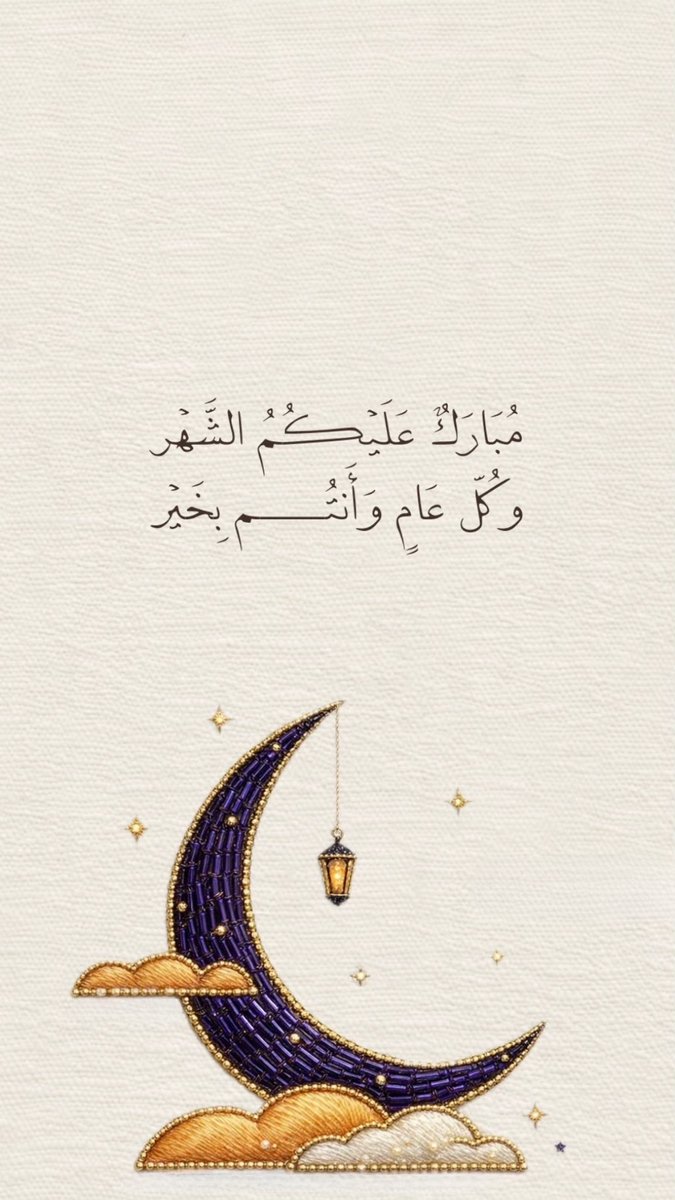 مُبَارَكٌ عَلَيْكُمُ الشَّهْر
وكُلّ عَامٍ وَأَنتُـــم بِخَيْر